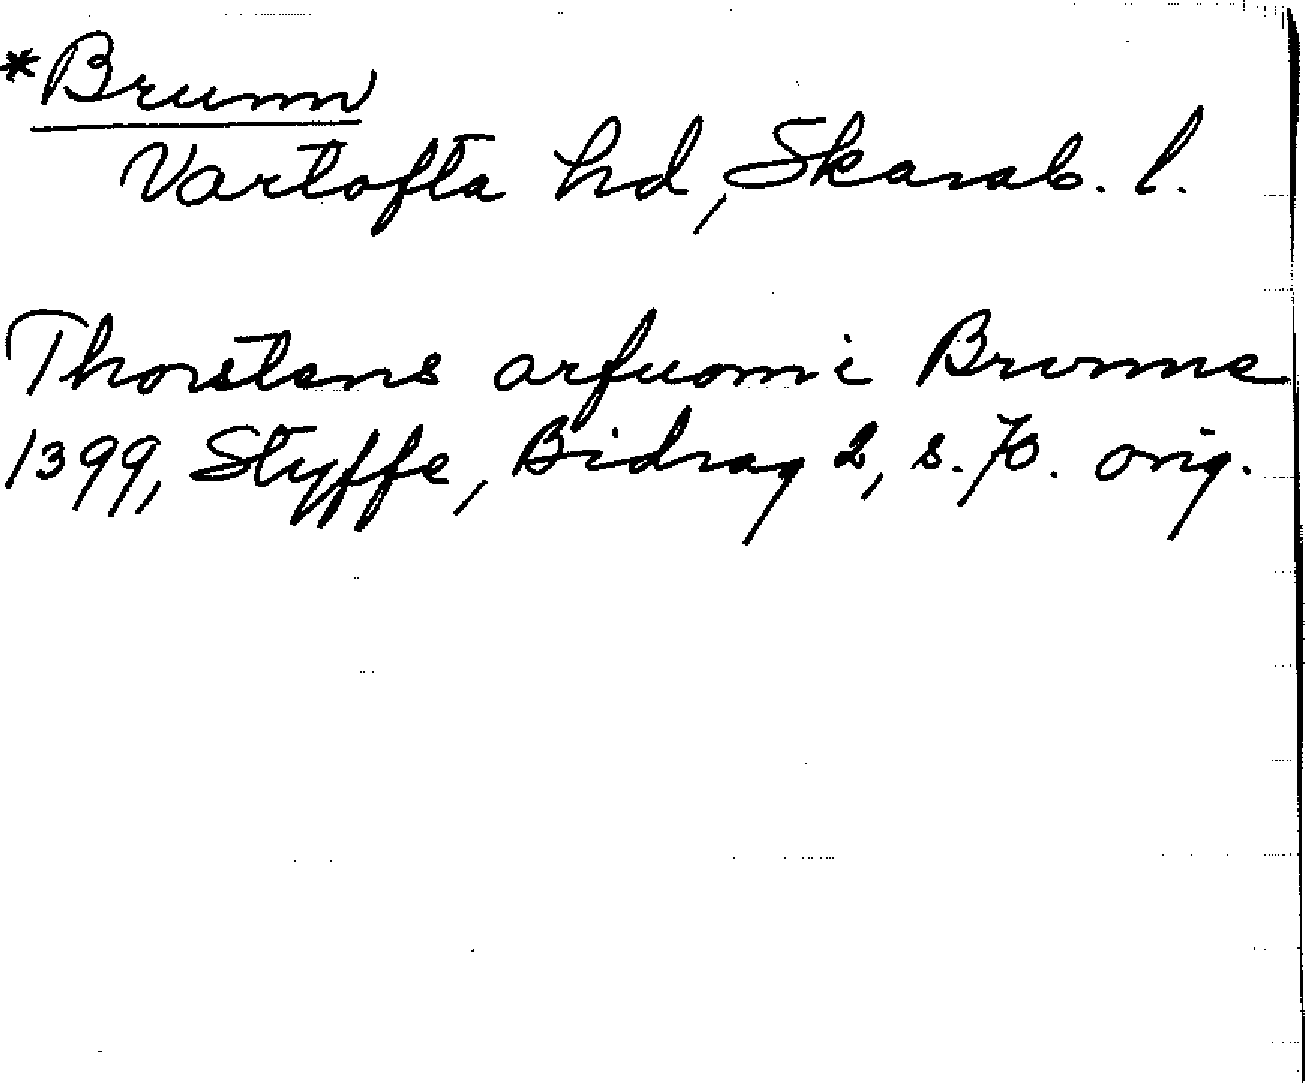 *Brunn
Vartofta hd, Skarab. l.
Thorstens arfuom i Brunne
1399, Styffe, Bidrag 2, s. 70. orig.